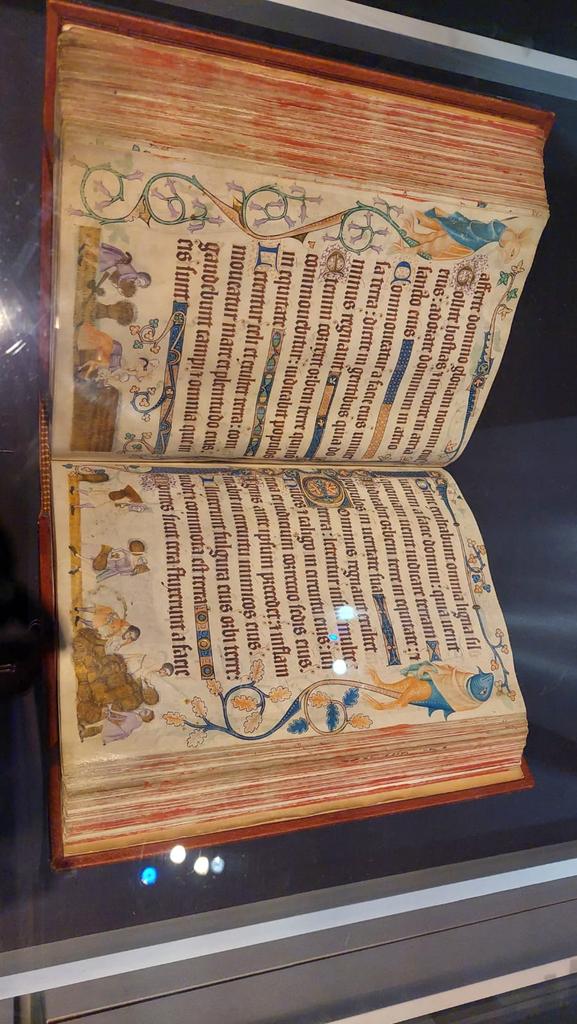 afferte domino gloriam nomini eius
Tollite hostias & introite in atria
eius: adorate dominum in atrio
sancto eius
Commoveatur a facie eius universa
terra: dicite in gentibus quia do
minus regnavit
Etenim correxit orbem terre qui non
commovebitur: iudicabit populos
in equitate
Letentur celi & exultet terra: com
moveatur mare & plenitudo eius:
gaudebunt campi & omnia que in
eis sunt
exultabunt omnia ligna sil
varum a facie domini: quia venit
quoniam venit iudicare terram
Iudicabit orbem terre in equitate: &
populos in veritate sua
Dominus regnavit exultet
terra: letentur insule multe
Nubes & caligo in circuitu eius:
iusticia & correccio sedis eius
Ignis ante ipsum precedet: & inflam
mabit in circuitu inimicos eius
Illuxerunt fulgura eius orbi terre:
vidit & commota est terra
Montes sicut cera fluxerunt a facie